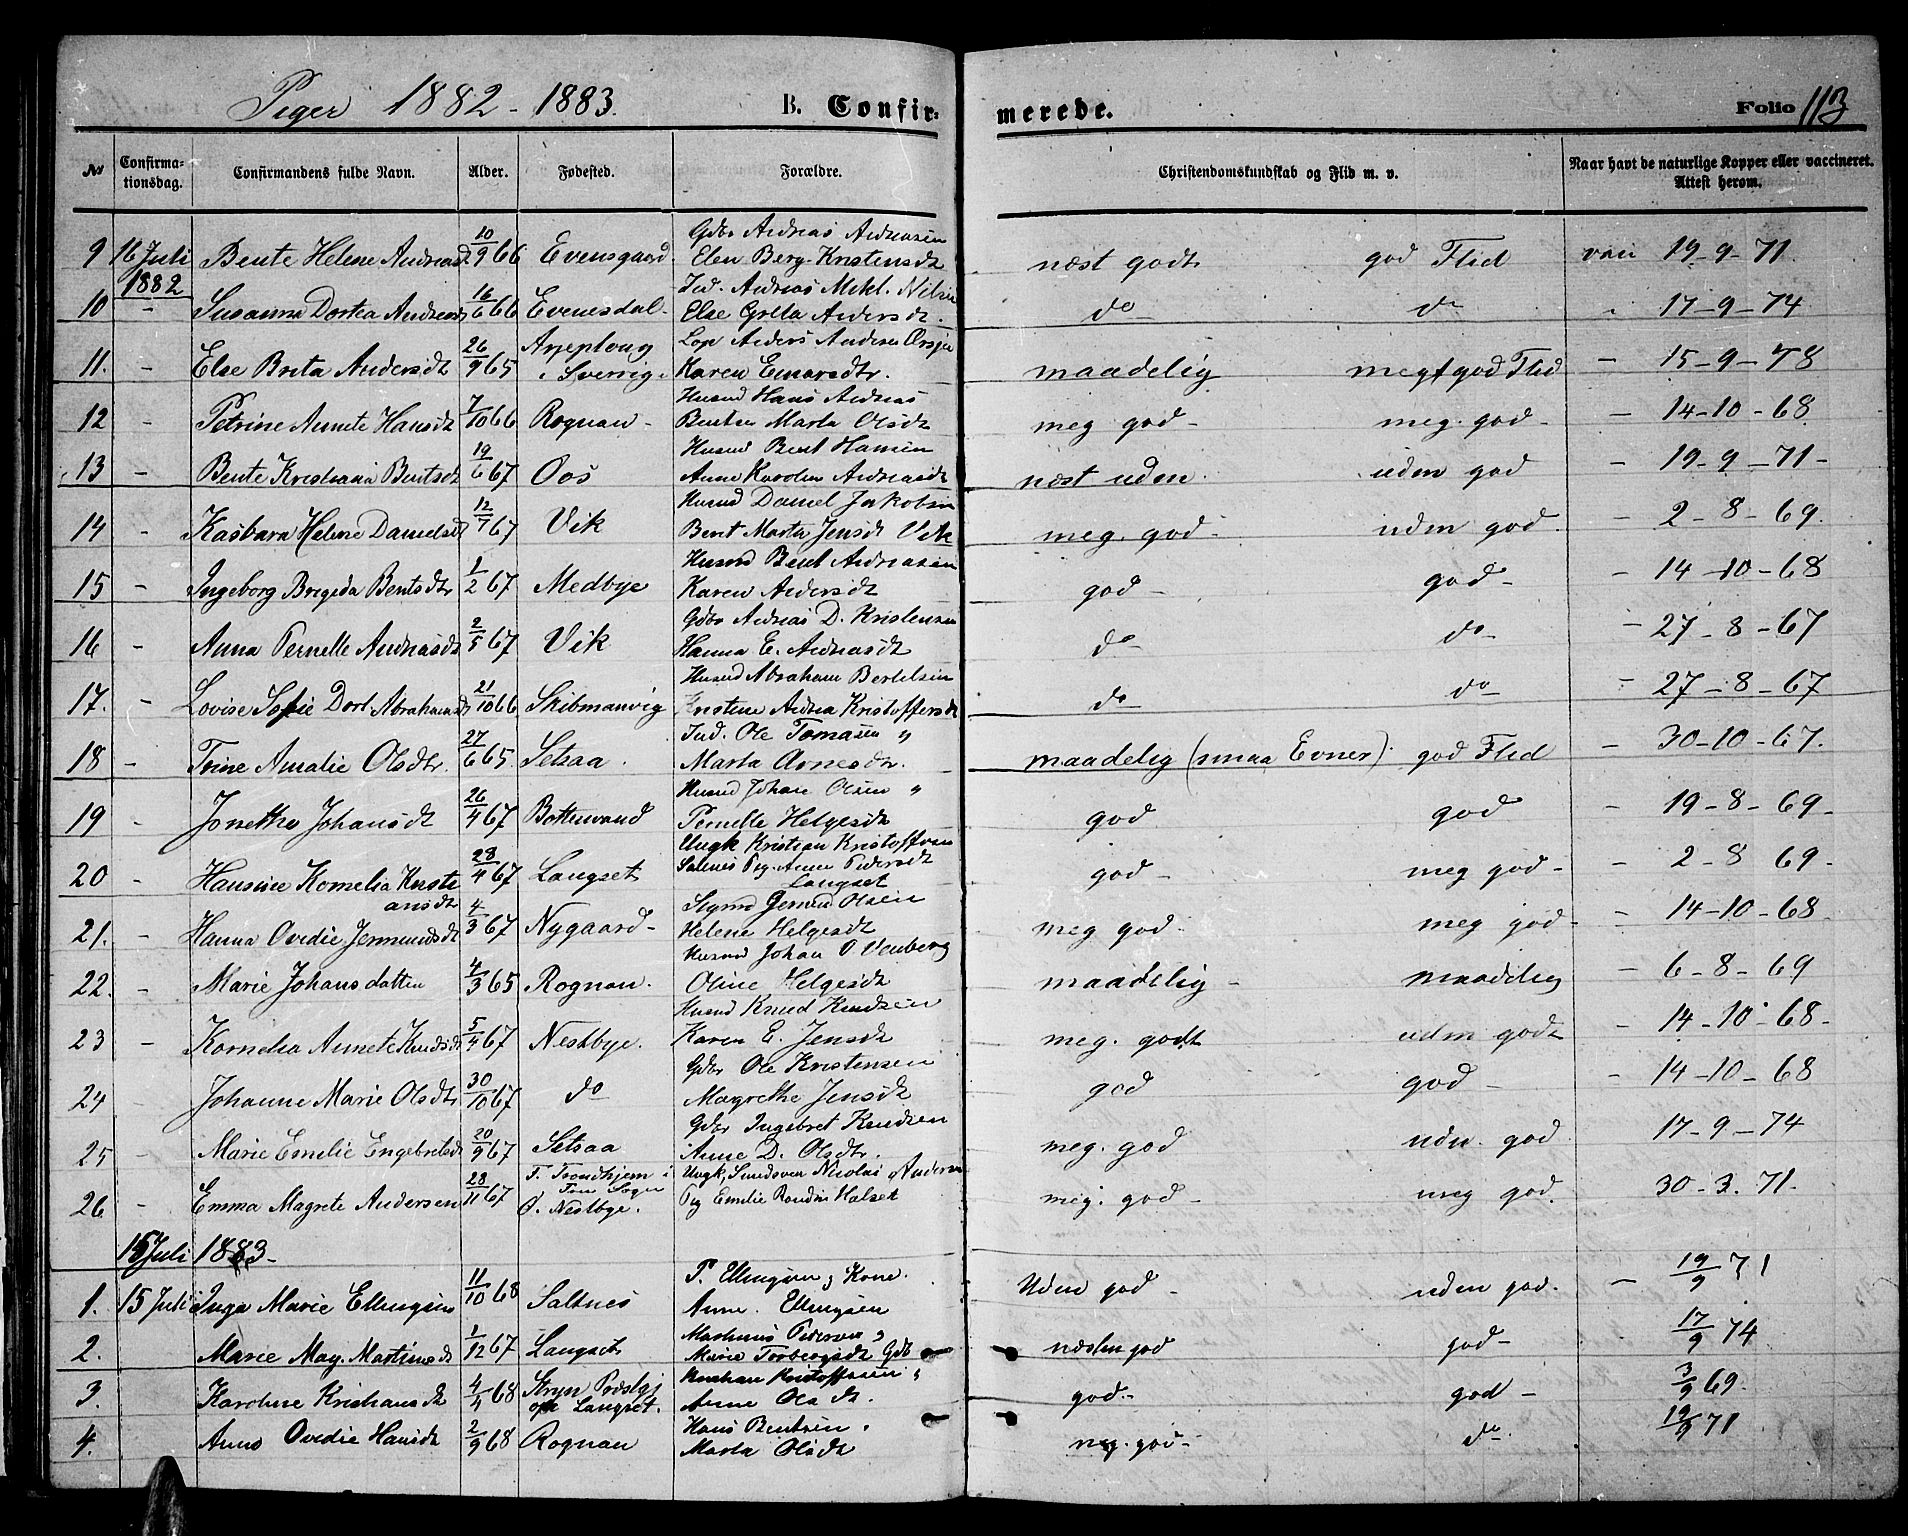 Piger 1882 - 1883. B. Confirmerede. Folio 113
No Confirmationsdag. Confirmandens fulde Navn. Alder. Fødested. Forældre. Christendomskundskab og Flid m. v. Naar havt de naturlige Kopper eller vaccineret. Attest herom.
Gdbr Andreas Andreasen
9 16 Juli Bente Helene Andreasd. 10/9 66 Evensgaard. Elen Berg. Kristensdt næst godt god Flid vac 19-9-71
1882 Ind. Andreas Mikl. Nilsen
10 - Susanna Dortea Andreasdt 16/6 66 Evenesdal - Else Greta Andersdt. do do 17-9-74
Lap Anders Andersen
11. - Else Brita Andersdt 26/9 65 Arjeploug i Sverrig. Karen Einarsdtr. maadelig meget god Flid - 15-9-78
Husmd Hans Andreas
12 - Petrine Annete Hansdt 7/10 66 Rognan - Bentsen Marta Olsdt meg god - meg. god - - 14-10-68
Husmd Bent Hansen
13 - Bente Kristiana Bentsdt 19/6 67 Oos Anne Karolen Andreasdt næst uden uden god - 19-9-71-
Husmd Daniel Jakobsen
14 - Kasbara Helene Danielsdt 12/7 67 Vik Berit Marta Jensdt Vik meg. god - uden god - 2-8-69.
Husmd Bent Andreasen
15 - Ingeborg Bregida Bentsdtr 1/2 67 Medbye Karen Andersdt god - god - - 14-10-68
Gdbr Andreas D. Kristensen
16 - Anna Pernelle Andreasdt 2/5 67 Vik Hanna E. Andreasdt do do - 27-8-67
Husmd Abraham Bertelsen
17. - Lovise Sofie Dort. Abrahamsdt 21/10 66 Skibmanvig Kristine Andrea Kristoffersdt do do - 27-8-67
Ind. Ole Tomasen "
18 - Trine Amalie Olsdtr. 27/6 65 Setsaa. Marta Arnesdtr. maadelig (smaa Evner). god Flid - 30-10-67.
Husmd Johan Olsen "
19 - Jonethe Johansdt 26/4 67 Bottenvand Pernelle Helgesdt god god - 19-8-69
Ungk Kristian Kristoffersen
20 - Hansine Kornelia Kristiansdtr 28/4 67 Langset Saltnes Pig. Anne Pedersdt Langset god - meg god - - 2-8 69-
21. - Hanna Ovedie Jermundsdt 4/3 67 Nygaard - Olsen Helene Helgesdt meg god - meg god - - 14-10-68
Husmd Johan O. Venberg
22. - Marie Johansdatter 4/3 65 Rognan. Oline Helgesdt maadelig - maadelig - 6-8-69
Husmd Knud Knudsen
23 - Kornelia Annete Knudsdt 5/4 67 Nestbye. Karen E. Jensdt meg. godt uden godt - 14-10-68-
Gdbr Ole Kristensen
24 - Johanne Marie Olsdtr 30/10 67 do Magrethe Jensdt god god - - 14-10-68
Gdbr Ingebret Knudsen
25 - Marie Emelie Engebretsdt 20/9 67 Setsaa Anne D. Olsdtr. meg. god uden. god 17-9-74
Ungk, Nicolai Andersen
26 - Emma Magrete Andersen 28/11 67 F. Trondhjem i Ø. Nestbye. Pig Emelie Halset meg. god meg god. 30-3.71-
15 Juli 1883-
P. Ellingsen, Kone.
1. 15 Juli Inga Marie Ellingsen 11/10 68 Saltnes Anne. Ellingsen Uden god - uden god. - 19/9 71
Martinus Pedersen,
2. Marie Mag. Martinsdt 1/12 67 Langset Marie Torbergsdt Gdb næsten god god - 17/9 74
Kristian Kristoffersen,
3. Karoline Kristiansdt 4/4 68 Stryn Præstgj. opk Langset. Anne Olsdt. god - god - 3/9 69.
Hans Bentsen.
4. Anne Ovedie Hansdt 2/9 68 Rognan Marta Olsdt meg. god - do. 19/9 71